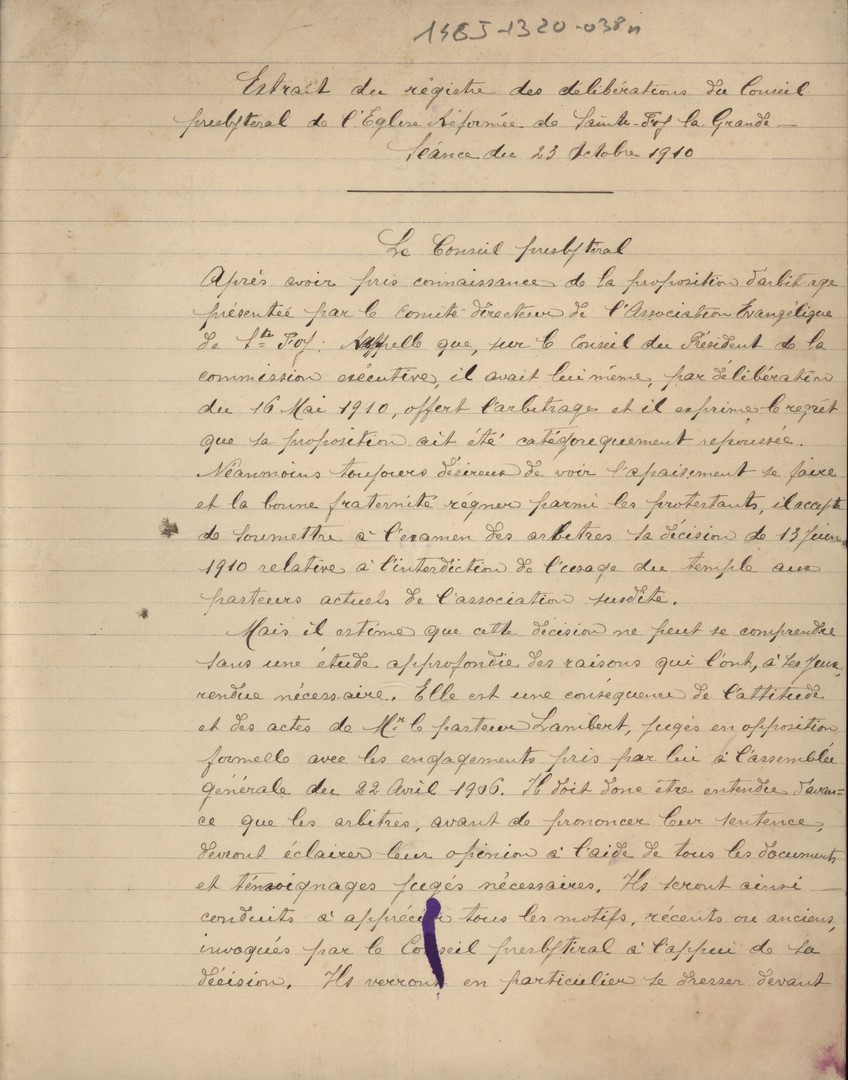 1985-1320-038n
Extrait du régistre des délibérations du Conseil
presbytéral de l'Eglise Réformée de Sainte-Foy la Grande —
Séance du 23 Octobre 1910
Le Conseil presbytéral
Après avoir pris connaissance de la proposition d'arbitrage
présentée par le comité directeur de l'Association Evangélique
de Ste Foy: Rappelle que, sur le Conseil du Président de la
commission exécutive, il avait lui même, par délibération
du 16 Mai 1910, offert l'arbitrage et il exprime le regrèt
que sa proposition ait été catégoriquement repoussée.
Néanmoins toujours désireux de voir l'apaisement se faire
et la bonne fraternité régner parmi les protestants, il accepte
de soumettre à l'examen des arbitres sa décision de 13 Juin
1910 relative à l'interdiction de l'usage du temple aux
pasteurs actuels de l'association susdite.
Mais il estime que cette décision ne peut se comprendre
sans une étude approfondie des raisons qui l'ont, à ses yeux,
rendue nécessaire. Elle est une conséquence de l'attitude
et des actes de Mr. le pasteur Lambert, jugés en opposition
formelle avec les engagements pris par lui à l'assemblée
générale du 22 Avril 1906. Il doit donc être entendu d'avan-
ce que les arbitres, avant de prononcer leur sentence,
devront éclairer leur opinion à l'aide de tous les documents
et témoignages jugés nécessaires. Ils seront ainsi —
conduits à apprécier tous les motifs, récents ou anciens,
invoqués par le Conseil presbytéral à l'appui de sa
décision. Ils verront en particulier se dresser devant